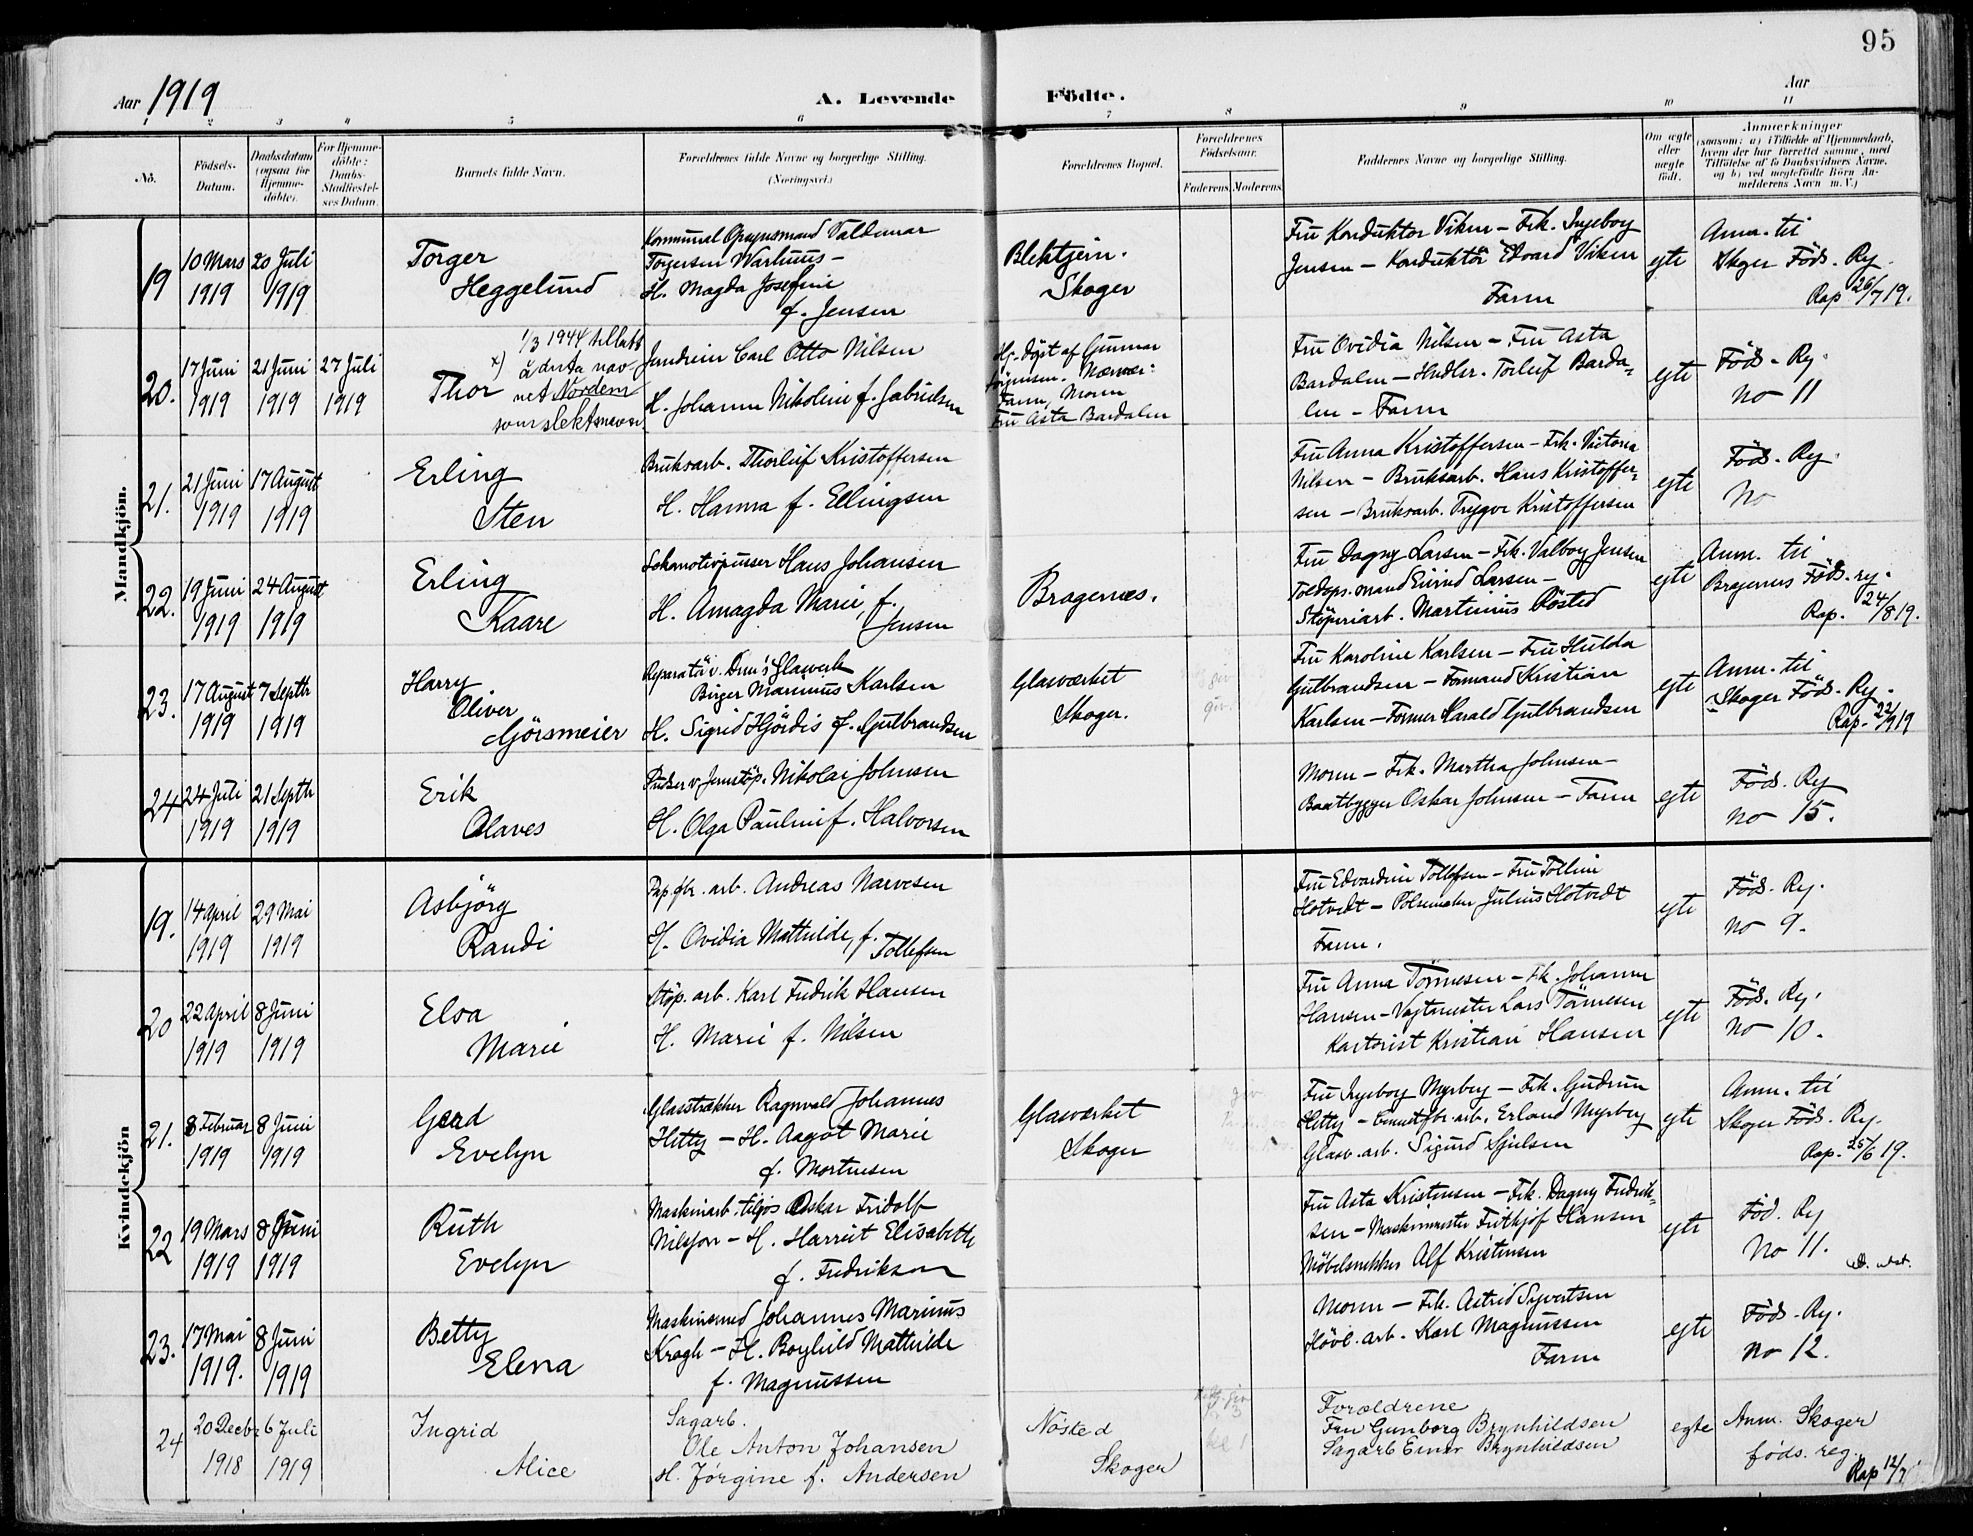 95
Aar 1919
A. Levende Födte.
Aar
1 2 3 4 5 6 7 8 9 10 11
No.
Födsels-
Datum.
Daabsdatum
(ogsaa for
Hjemme-
döbte).
For Hjemme-
döbte:
Daabs-
Stadfæstel-
ses Datum.
Barnets fulde Navn.
Forældrenes fulde Navne og borgerlige Stilling.
(Næringsvei.)
Forældrenes Bopæl.
Forældrenes
Födselsaar.
Faderens. Moderens.
Faddernes Navne og borgerlige Stilling.
Om ægte
eller
uægte
födt.
Anmærkninger
(saasom: a) i Tilfælde af Hjemmedaab,
hvem der har forrettet samme, med
Tilföielse af to Daabsvidners Navne,
og b) ved uægtefödte Börn An-
melderens Navn m. V.)
Mandkjön.
19
10 Mars
1919
20 Juli
1919
Torger
Heggelund
Kommunal Opsynsmand Valdemar
Torgersen Warhuus -
H. Magda Josefine
f. Jensen
Blektjern.
Skoger
Fru Konduktör Viken - Frk. Ingeborg
Jensen - Konduktör Edvard Viken
Farm
egte
Anm. til
Skger Föds. Rg.
Rap 26/7 19.
20.
17 Juni
1919
21 Juni
1919
27 Juli
1919
Thor
x) 1/3 1944 tillatt
å anta nav-
net Nordem
som slektsnavn
Carl Otto Nilsen
H. Johanne Nikoline f. Gabrielsen
Hj. döpt af Gunnar
Farm, Morm
Fru Asta Bardalen
Fru Ovidia Nilsen - Fru Asta
Bardalen - Hndler. Torleif Barda-
len - Farm
egte
Föds. Rg.
No 11
21.
21 Juni
1919
17 August
1919
Erling
Sten
Bruksarb. Thorleif Kristoffersen
H. Hanna f. Ellingsen
Fru Anna Kristoffersen - Frk. Victoria
Nilsen - Bruksarb. Hans Kristoffer-
sen - Bruksarb. Trygve Kristoffersen
egte
Föds. Rg.
No
22.
19 Juni
1919
24 August
1919
Erling
Kaare
Lokomotivpusser Hans Johansen
H. Amagda Marie, f.
Jensen
Bragernes.
Fru Dagny Larsen - Frk. Valborg Jensen
Toldops. mand Eivind Larsen -
Stöperiarb. Martinius Rösted
egte
Anm. til
Bragernes Föds. rg.
Rap. 24/8 19.
23.
17 August
1919
7 Septbr
1919
Harry
Oliver
Görsmeier
Reparatör v. Drm's Glasverk
Birger Marinius Karlsen
H. Sigrid Hjördis f. Gulbrandsen
Glasværket
Skoger.
Fru Karoline Karlsen - Fru Hulda
Gulbrandsen - Formand Kristian
Karlsen - Former Harald Gulbrandsen
egte
Anm. til
Skoger Föds. Rg.
Rap. 22/9 19
24
24 Juli
1919
21 Septbr
1919
Erik
Olaves
Pudser v. Jernstöp. Nikolai Johnsen
H. Olga Pauline f. Halvorsen
Morm - Frk. Martha Johnsen -
Baatbygger Oskar Johnsen - Farm
egte
Föds. Rg
No 15.
Kvindekjön
19.
14 April
1919
29 Mai
1919
Asbjörg
Randi
Papfbr. arb. Andreas Narvesen
H. Ovidia Mathilde, f.
Tollefsen
Fru Edvardine Tollefsen - Fru Tolline
Hotvedt - Pölsemaker Julius Hotvedt
Farm.
egte
Föds. Rg.
No 9.
20
22 April
1919
8 Juni
1919
Elva
Marie
Stöp. arb. Karl Fredrik Hansen
H. Marie f. Nilsen
Fru Anna Tönnesen - Frk. Johanne
Hansen - Vagtmester Lars Tönnesen
Kontorist Kristian Hansen
egte
Föds. Rg.
No 10.
21.
8 Februar
1919
8 Juni
1919
Gerd
Evelyn
Glasstrækker Ragnvald Johannes
Hetty - H. Aagot Marie
f. Mortensen
Glasværket
Skoger
Fru Ingeborg Myrberg - Frk. Gudrun
Hetty - Cementfbr arb. Erland Myrberg
Glasv. arb. Sigurd Gjulsen
egte
Anm. til
Skoger Föds. Rg.
Rap. 25/6 19.
22
19 Mars
1919
8 Juni
1919
Ruth
Evelyn
Maskinarb. Oskar Fridolf
Nilsson - H. Harriet Elisabeth
f. Fredrikson
Fru Asta Kristensen - Frk. Dagny Fredrik-
sen - Maskinmester Frithjof Hansen
Möbelsnekker Alf Kristensen
egte
Föd. Rg
No 11.
23.
17 Mai
1919.
8 Juni
1919
Betty
Elena
Maskinsmed Johannes Marinus
Kragh - H. Borghild Mathilde
f. Magnussen
Morm - Frk. Astrid Syvertsen
Hövl. arb. Karl Magnussen
Farm
egte
Föds. Rg.
No 12.
24
20 Decbr
1918
6 Juli
1919
Ingrid
Alice
Sagarb.
Ole Anton Johansen
H. Jørgine f. Andersen
Nøsted
Skoger
Forældrene
Fru Gunborg Brynhildsen
Sagarb Einar Brynhildsen
egte
Anm. Skoger
føds. reg.
Rap 12/7